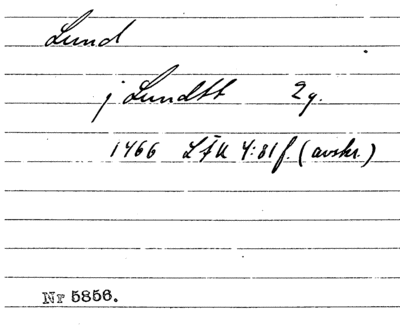 Lund
j Lundtt 2g.
1466 LFU 4:81f. (avskr.)
Nr 5856.